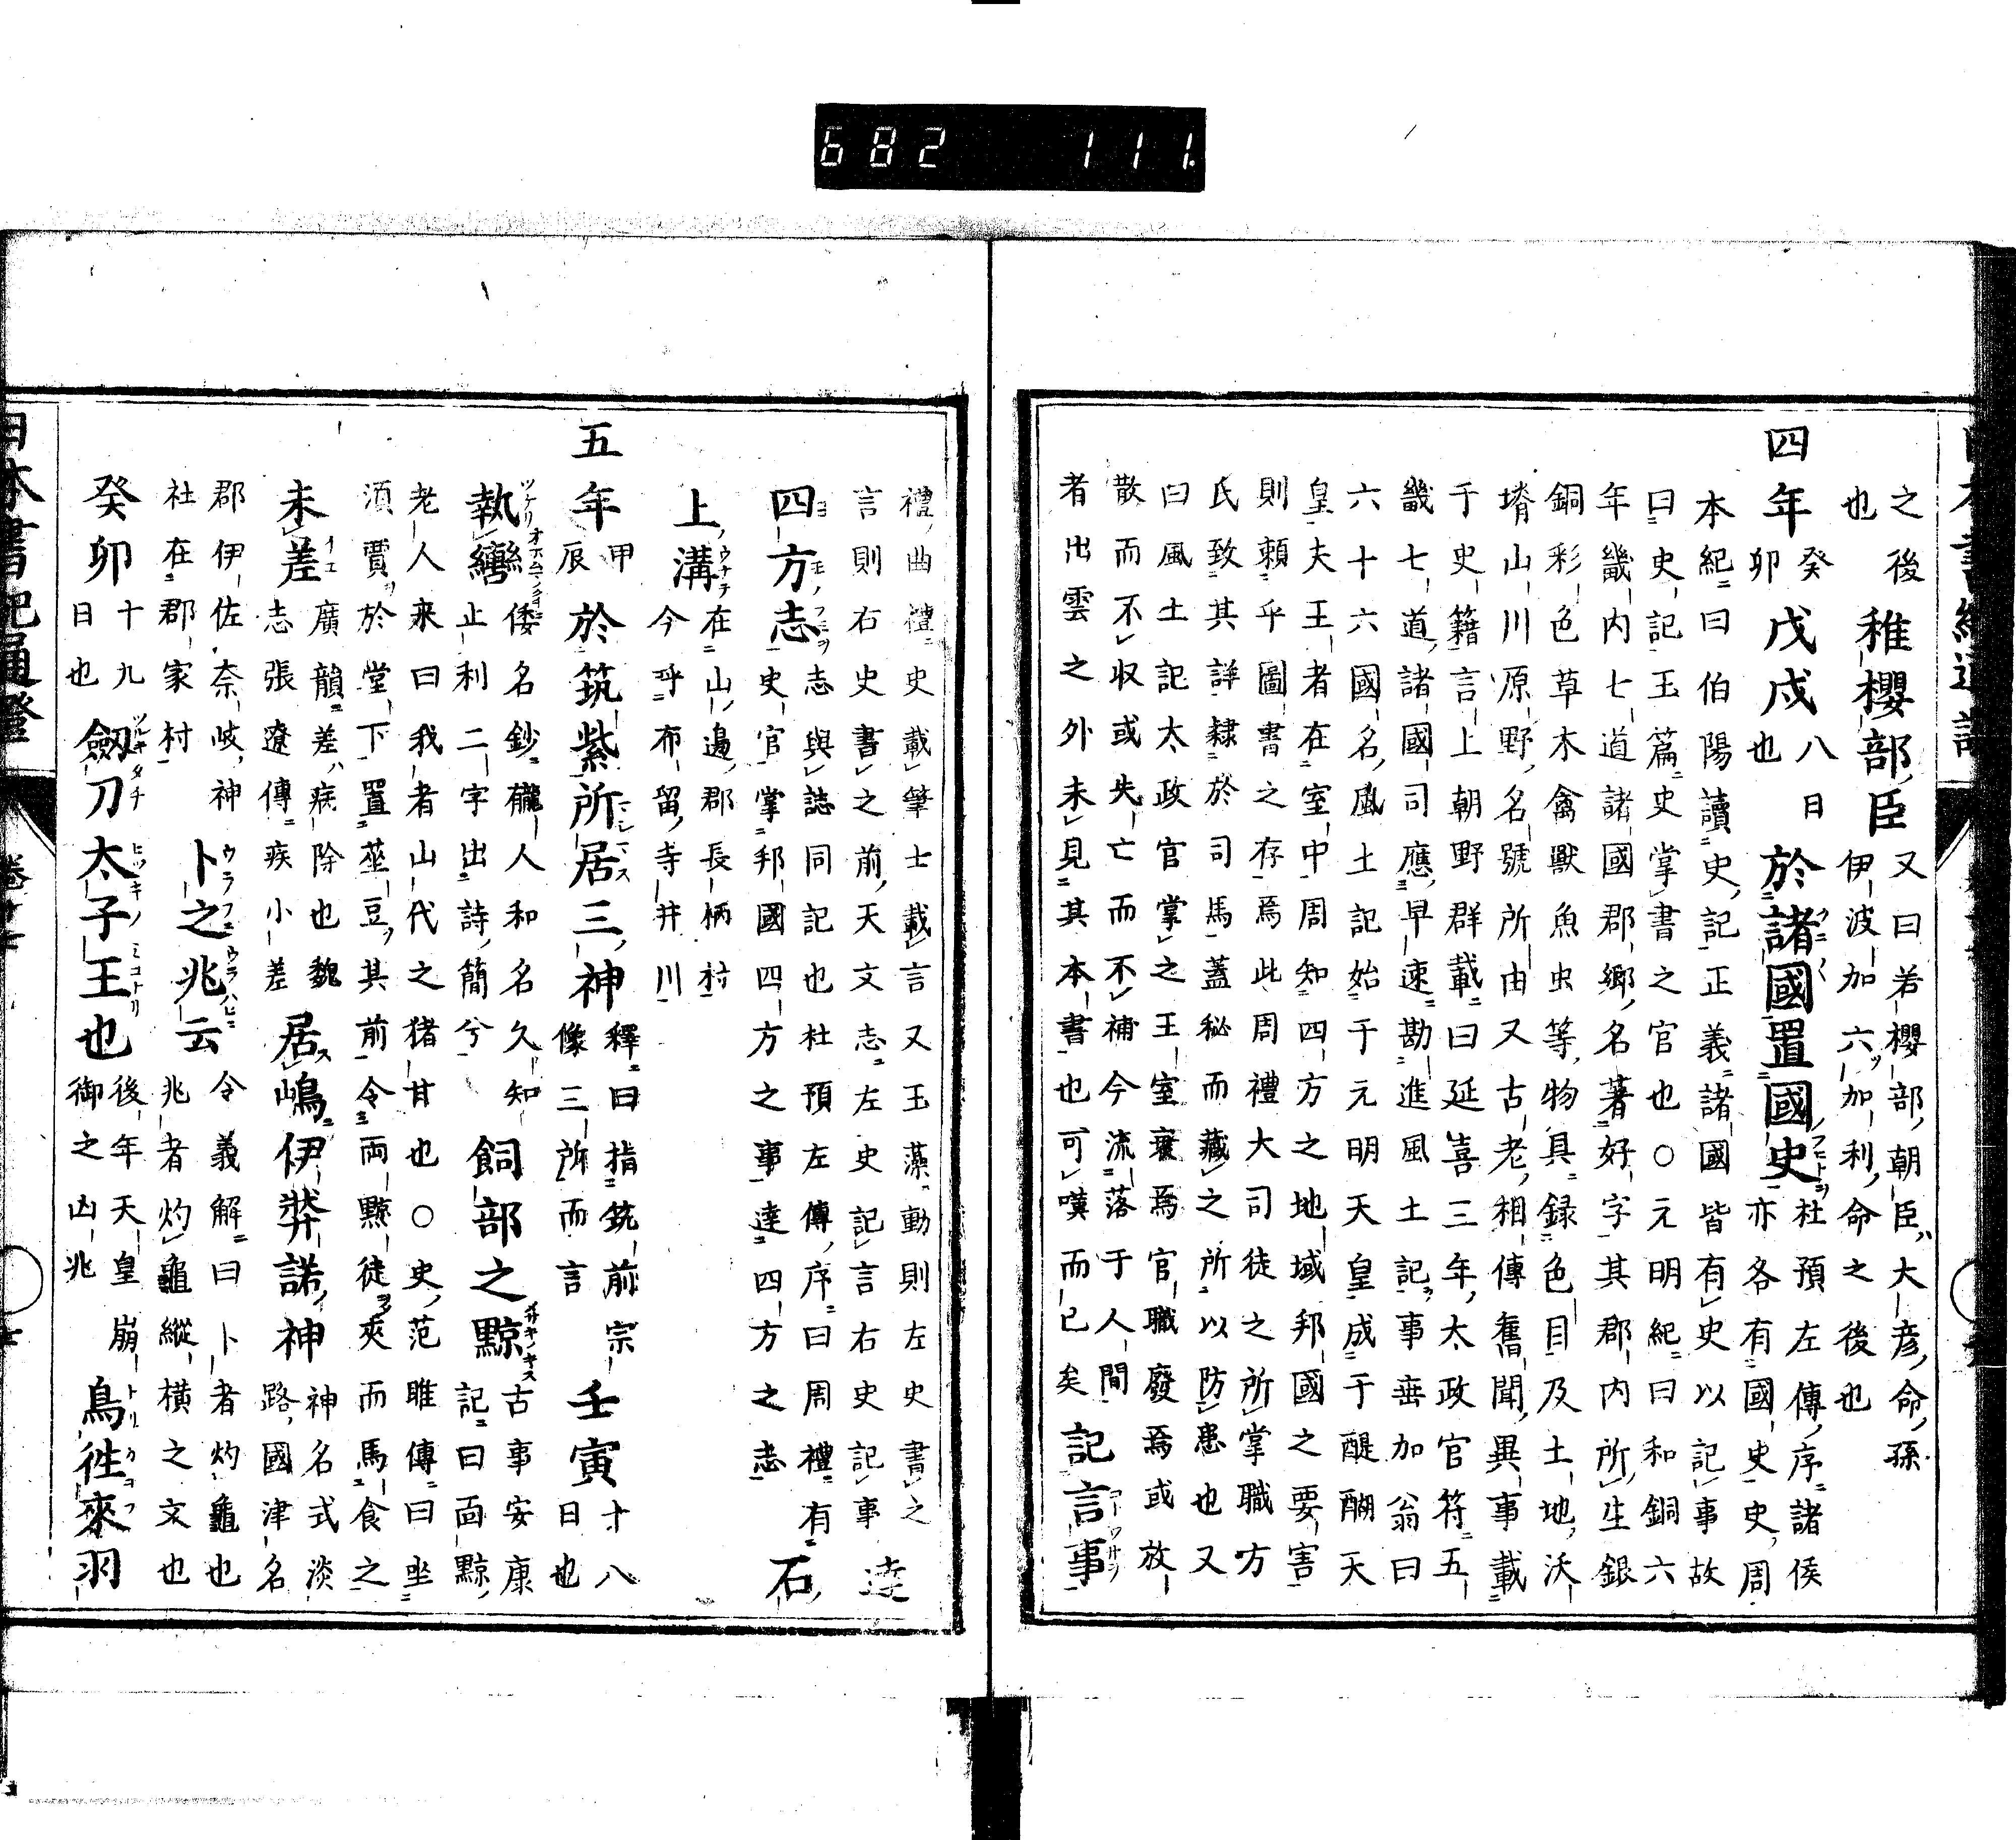 682 111.
之後 稚櫻部臣 又曰若櫻部朝臣大彦命孫
也 伊波加六加利命之後也
四年 癸卯 戊戌 八日也 於諸國置國史 杜預左傳序諸侯亦各有國史史周
本紀曰伯陽讀史記正義諸國皆有史以記事故
曰史記玉篇史掌書之官也○元明紀曰和銅六
年畿内七道諸國郡郷名著好字其郡内所生銀
銅彩色草木禽獸魚虫等物具録色目及土地沃
塉山川原野名號所由又古老相傳舊聞異事載
于史籍言上朝野群載曰延喜三年太政官符五
畿七道諸國司應早速勘進風土記事垂加翁曰
六十六國名風土記始于元明天皇成于醍醐天
皇夫王者在室中周知四方之地域邦國之要害
則頼乎圖書之存焉此周禮大司徒之所掌職方
氏致其詳隷於司馬蓋秘而藏之所以防患也又
曰風土記太政官掌之王室衰焉官職廢焉或放
散而不収或失亡而不補今流落于人間
者出雲之外未見其本書也可嘆而已矣 記言事
禮曲禮史載筆士載言又玉藻動則左史書之
言則右史書之前天文志左史記言右史記事 達
四方志 志與誌同記也杜預左傳序曰周禮有
史官掌邦國四方之事達四方之志 石
上溝 在山邊郡長柄村
今呼布留寺井川
五年 甲辰 於筑紫所居三神 釋曰指筑前宗像三所而言 壬寅 十八日也
執轡 倭名鈔龓人和名久知
止利二字出詩簡兮 飼部之黥 古事安康記曰面黥
老人来曰我者山代之猪甘也○史范睢傳曰坐
須賈於堂下置莝豆其前令兩黥徒夾而馬食之
未差 廣韻差病除也魏志張遼傳疾小差 居嶋伊弉諾神 神名式淡路國津名
郡伊佐奈岐神社在郡家村 卜之兆云 令義解曰卜者灼龜也兆者灼龜縱横之文也
癸卯 十九日也 劔刀太子王也 後年天皇崩御之凶兆 鳥徃來羽
日本書紀通證